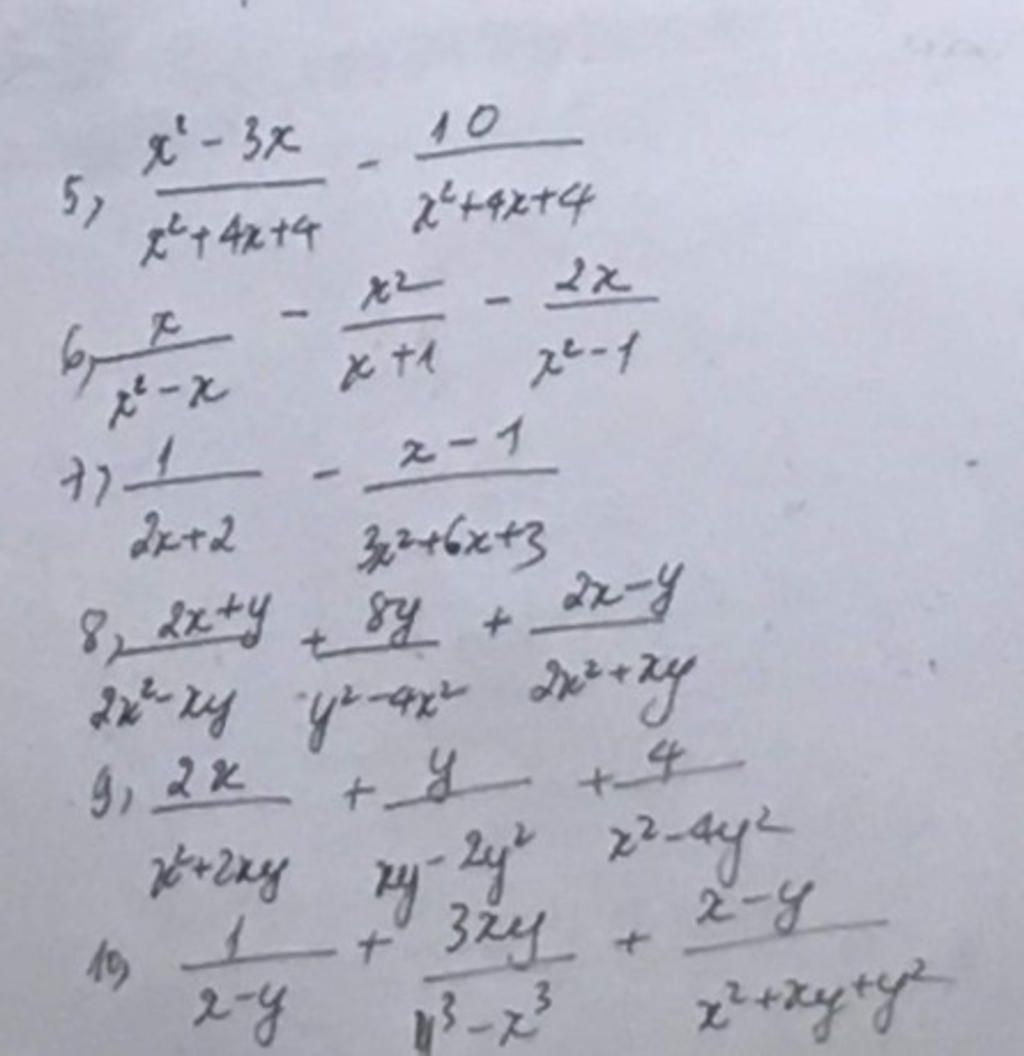 5, (x² - 3x)/(x²+4x+4) - 10/(x²+4x+4)
6, x/(x² - x) - x²/(x+1) - 2x/(x² - 1)
7, 1/(2x+2) - (x - 1)/(3x²+6x+3)
8, (2x+y)/(2x² - xy) + 8y/(y² - 4x²) + (2x - y)/(2x² + xy)
9, 2x/(x²+2xy) + y/(xy - 2y²) + 4/(x² - 4y²)
10, 1/(x - y) + 3xy/(y³ - x³) + (x - y)/(x² + xy + y²)